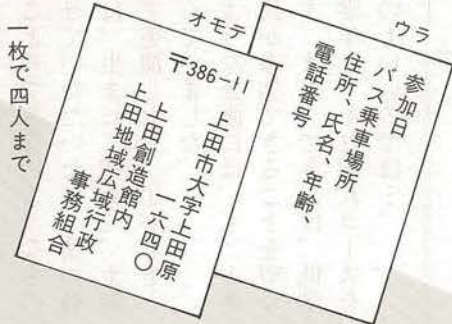 ウラ
参加日
バス乗車場所
住所、氏名、年齢、
電話番号
オモテ
〒386-11
上田市大字上田原
一六四〇
上田創造館内
上田地域広域行政
事務組合
一枚で四人まで